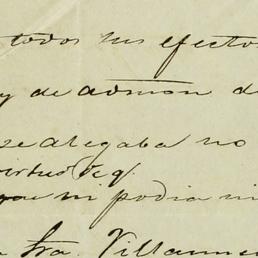 todos sus efectos
y de admon de
se alegaba no
virtud de q.
que ni podia ni
Sra. Villanue